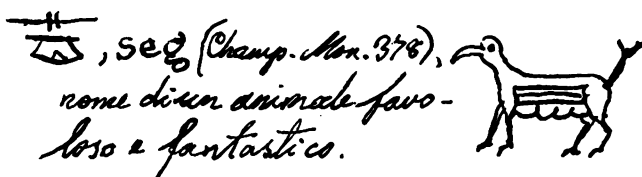 , seg (Champ. Mon. 378),
nome di un animale favo-
loso e fantastico.